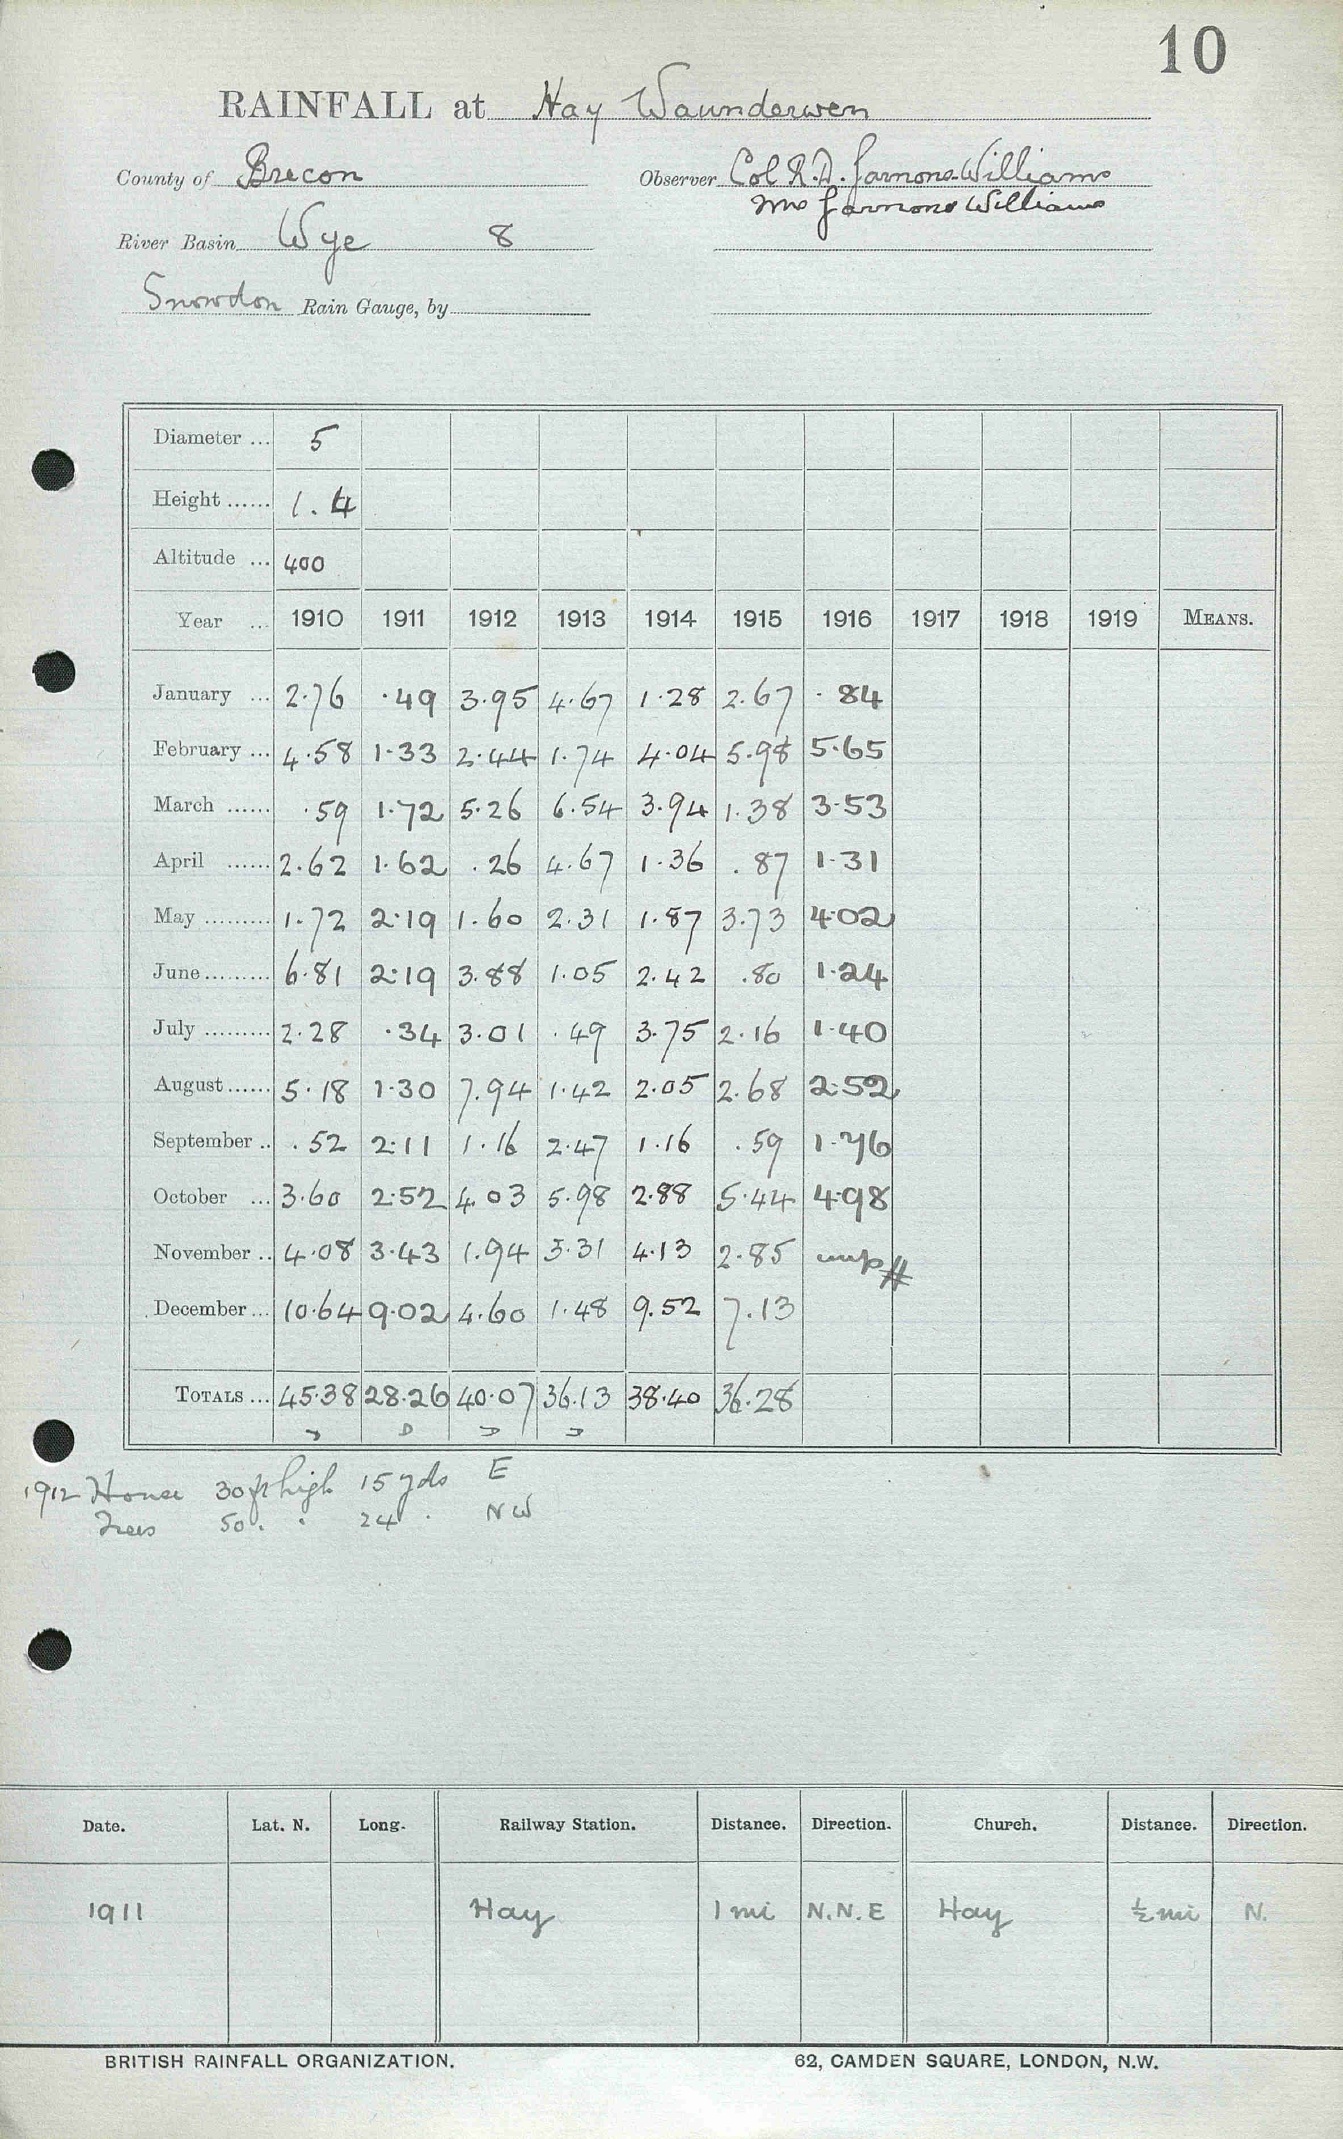 10
RAINFALL at Hay Waunderwen
County of Brecon Observer Col R.D. Garnons-Williams
Mrs Garnons Williams
River Basin Wye 8
Snowdon Rain Gauge, by
Diameter ... 5
Height ...... 1.4
Altitude ... 400
Year ... 1910 1911 1912 1913 1914 1915 1916 1917 1918 1919 MEANS.
January ... 2.76 .49 3.95 4.67 1.28 2.67 .84
February ... 4.58 1.33 2.44 1.74 4.04 5.98 5.65
March ...... .59 1.72 5.26 6.54 3.94 1.38 3.53
April ...... 2.62 1.62 .26 4.67 1.36 .87 1.31
May ......... 1.72 2.19 1.60 2.31 1.87 3.73 4.02
June ......... 6.81 2.19 3.88 1.05 2.42 .80 1.24
July ......... 2.28 .34 3.01 .49 3.75 2.16 1.40
August ...... 5.18 1.30 7.94 1.42 2.05 2.68 2.52
September .. .52 2.11 1.16 2.47 1.16 .59 1.76
October ... 3.60 2.52 4.03 5.98 2.88 5.44 4.98
November .. 4.08 3.43 1.94 3.31 4.13 2.85
December ... 10.64 9.02 4.60 1.48 9.52 7.13
TOTALS ... 45.38 28.26 40.07 36.13 38.40 36.28
1912 House 30 ft high 15 yds E
Trees 50 " " 24 " NW
Date. Lat. N. Long. Railway Station. Distance. Direction. Church. Distance. Direction.
1911 Hay 1 mi N.N.E Hay ½ mi N.
BRITISH RAINFALL ORGANIZATION. 62, CAMDEN SQUARE, LONDON, N.W.